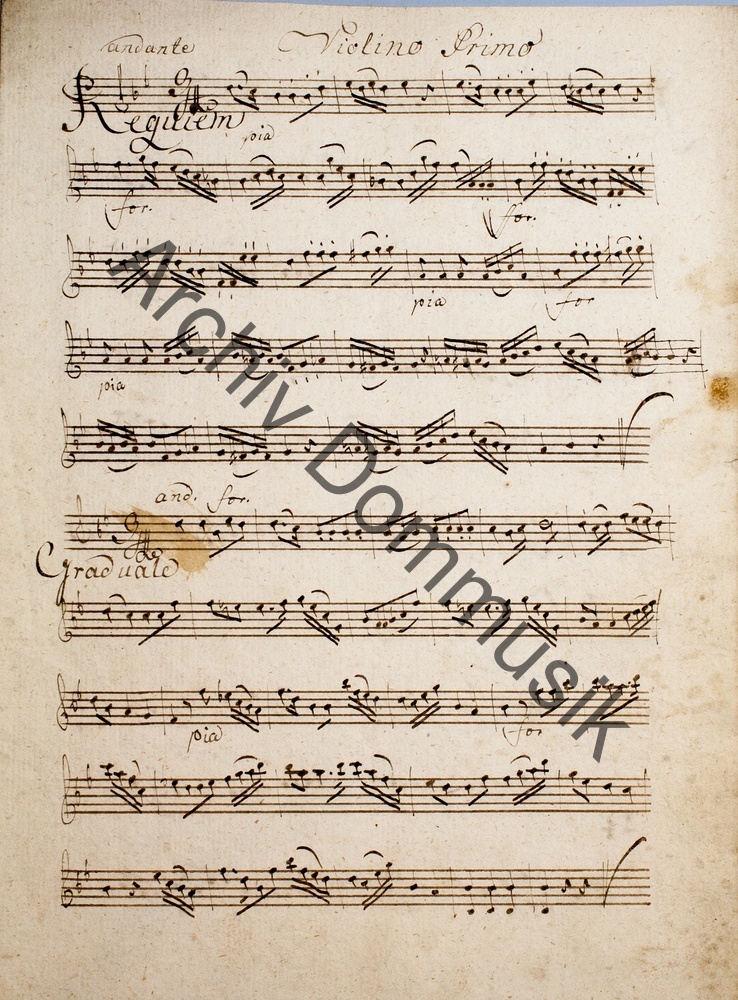 andante Violino Primo
Requiem
pia
for. for.
pia for
pia
and. for.
Graduale
pia for
Archiv Dommusik